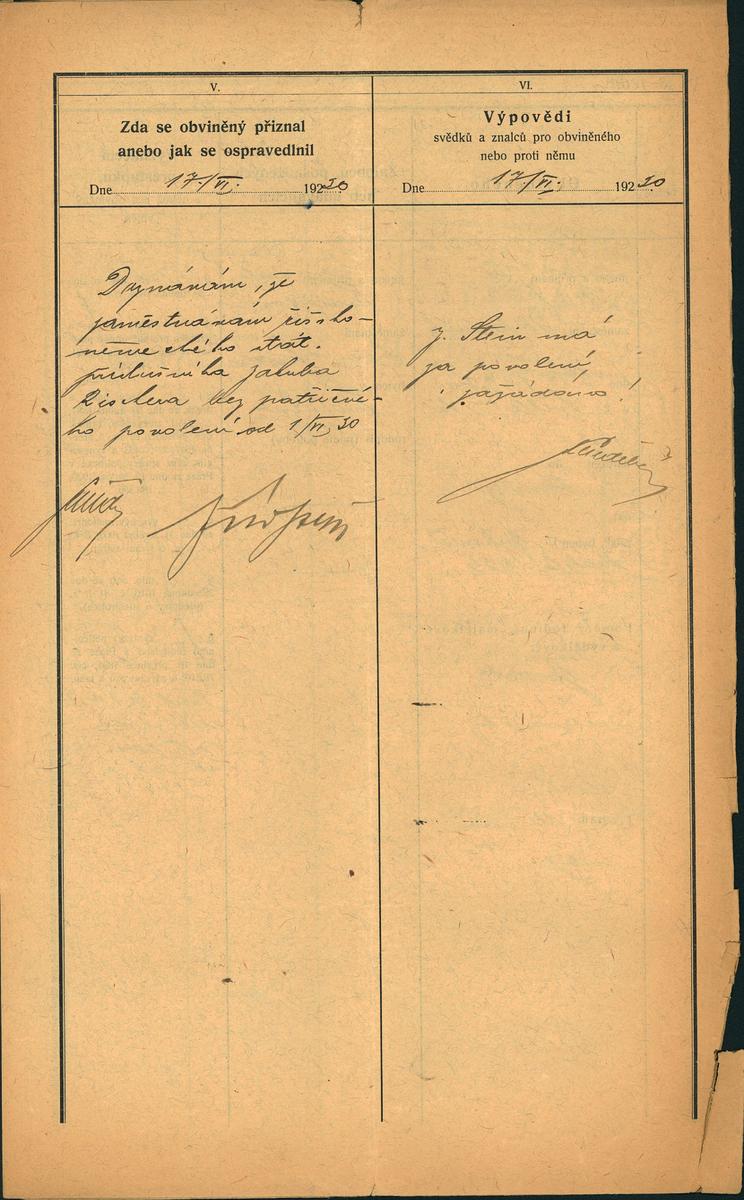 V.
Zda se obviněný přiznal
anebo jak se ospravedlnil
Dne 17./VI. 192 30
Doznávám, že
zaměstnávám říšsko-
německého stát.
příslušníka Jakuba
bez patřičné-
ho povolení od 1/VI 30
VI.
Výpovědi
svědků a znalců pro obviněného
nebo proti němu
Dne 17/VI. 192 30
J. Stein má
za povolení
zažádáno!